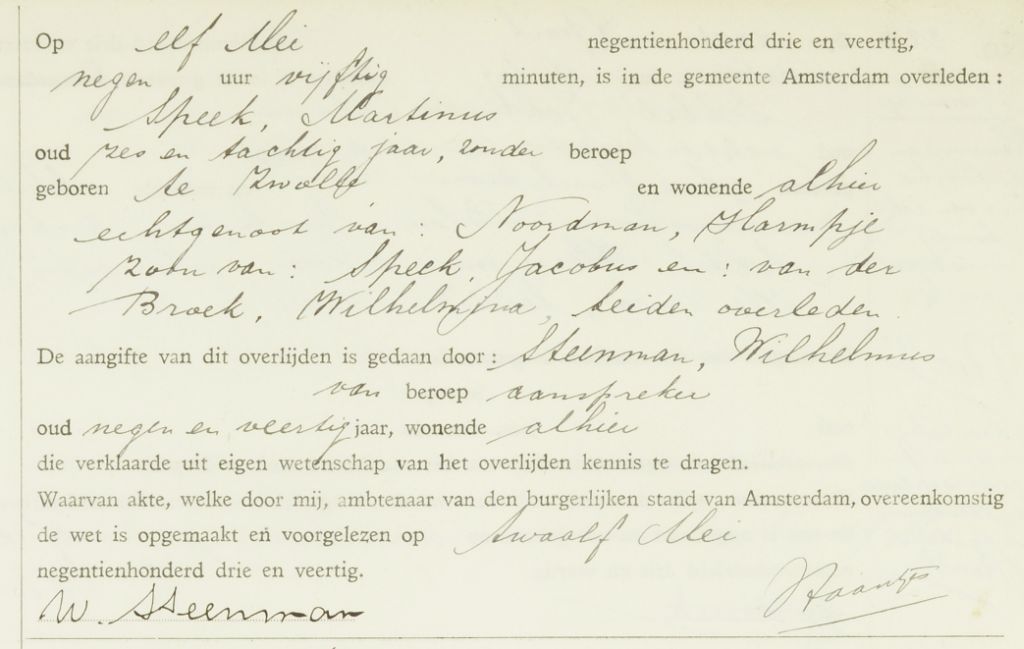 Op elf Mei negentienhonderd drie en veertig,
negen uur vijftig minuten, is in de gemeente Amsterdam overleden :
Speek, Martinus
oud zes en tachtig jaar, zonder beroep
geboren te Zwolle en wonende alhier
echtgenoot van : Noordman, Harmpje
zoon van : Speek, Jacobus en : van der
Broek, Wilhelmina, beiden overleden.
De aangifte van dit overlijden is gedaan door : Steenman, Wilhelmus
van beroep aanspreker
oud negen en veertig jaar, wonende alhier
die verklaarde uit eigen wetenschap van het overlijden kennis te dragen.
Waarvan akte, welke door mij, ambtenaar van den burgerlijken stand van Amsterdam, overeenkomstig
de wet is opgemaakt en voorgelezen op twaalf Mei
negentienhonderd drie en veertig.
W. Steenman